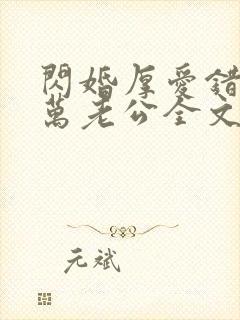 閃婚厚愛錯
萬老公全文
元斌